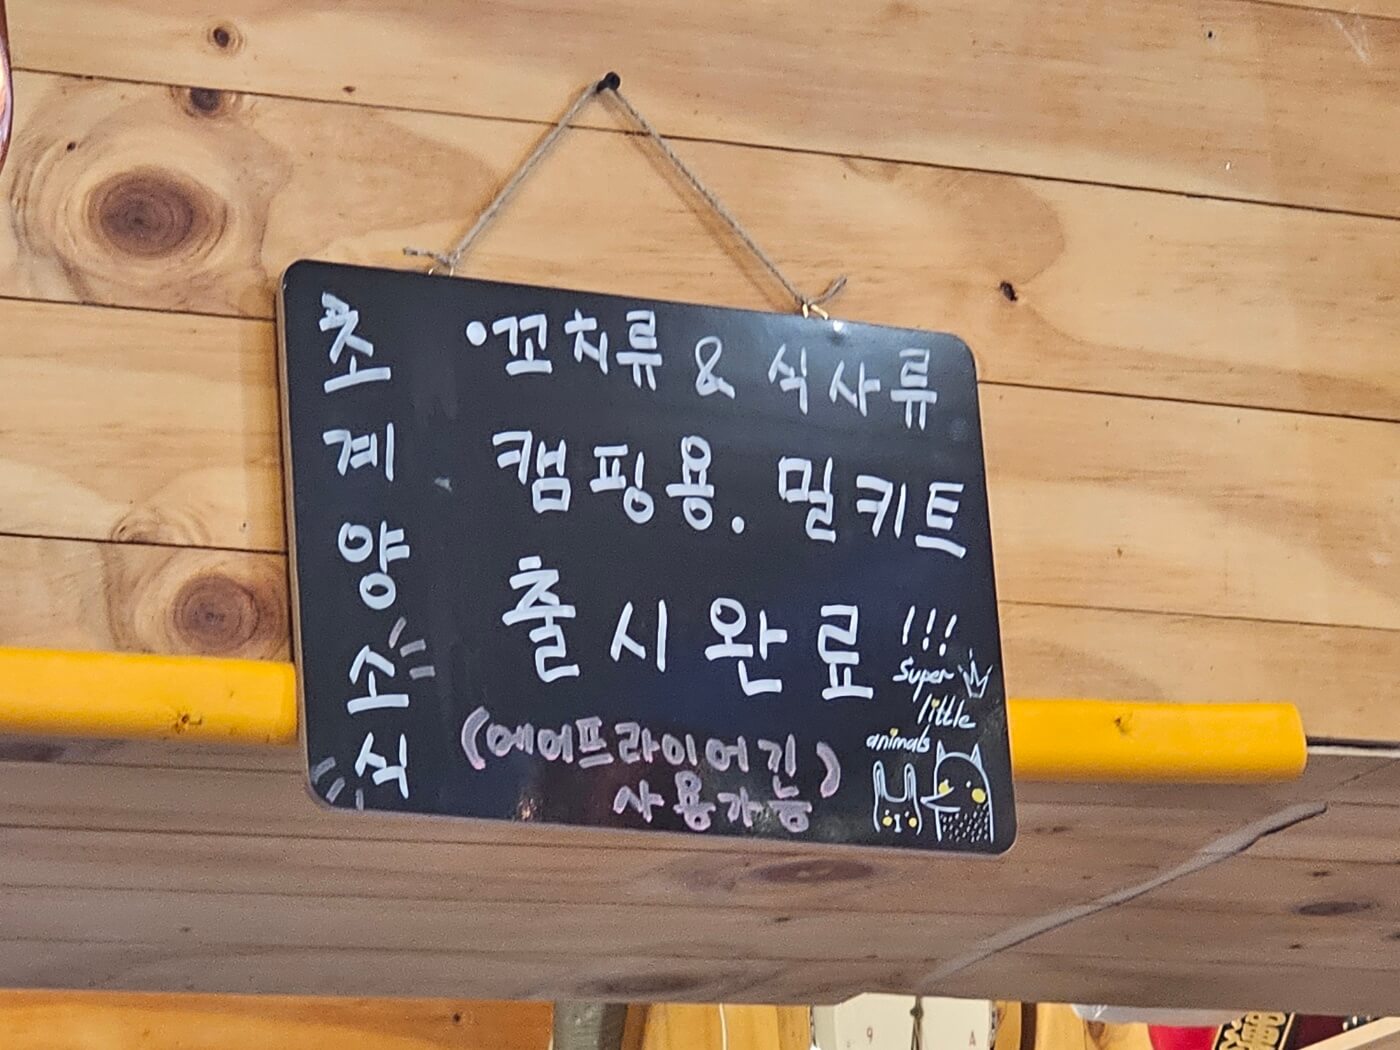 초계양소식
•꼬치류 & 식사류
캠핑용. 밀키트
출시완료!!!
(에어프라이어긴
사용가능)
super
little
animals
9 A